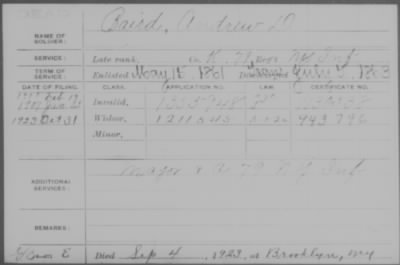 DEAD
NAME OF SOLDIER: Baird, Andrew D.
SERVICE: Late rank, Co. K, 79 Reg't NY Inf
TERM OF SERVICE: Enlisted May 15, 1861 Discharged July 1863
DATE OF FILING. CLASS. APPLICATION NO. LAW. CERTIFICATE NO.
Invalid,
1923 Oct 31 Widow, 1211545 943796
Minor,
ADDITIONAL SERVICES: Major 79 NY Inf
REMARKS:
E Died Sep 4, 1923, at Brooklyn, NY